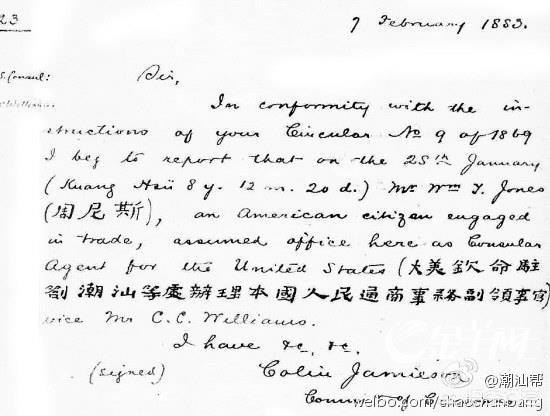 23
7 February 1883.
S. Consul:
Sir,
In conformity with the in-
structions of your Circular No 9 of 1869
I beg to report that on the 28th January
(Kuang Hsü 8 y. 12 m. 20 d.) Mr Wm Y. Jones
(周尼斯), an American citizen engaged
in trade, assumed office here as Consular
Agent for the United States (大美欽命駐
劄潮汕等處辦理本國人民通商事務副領事官)
vice Mr C. C. Williams.
I have &c, &c.
(signed) Colin Jamieson
Commr of Customs
@潮汕帮
weibo.com/chaoshanbang